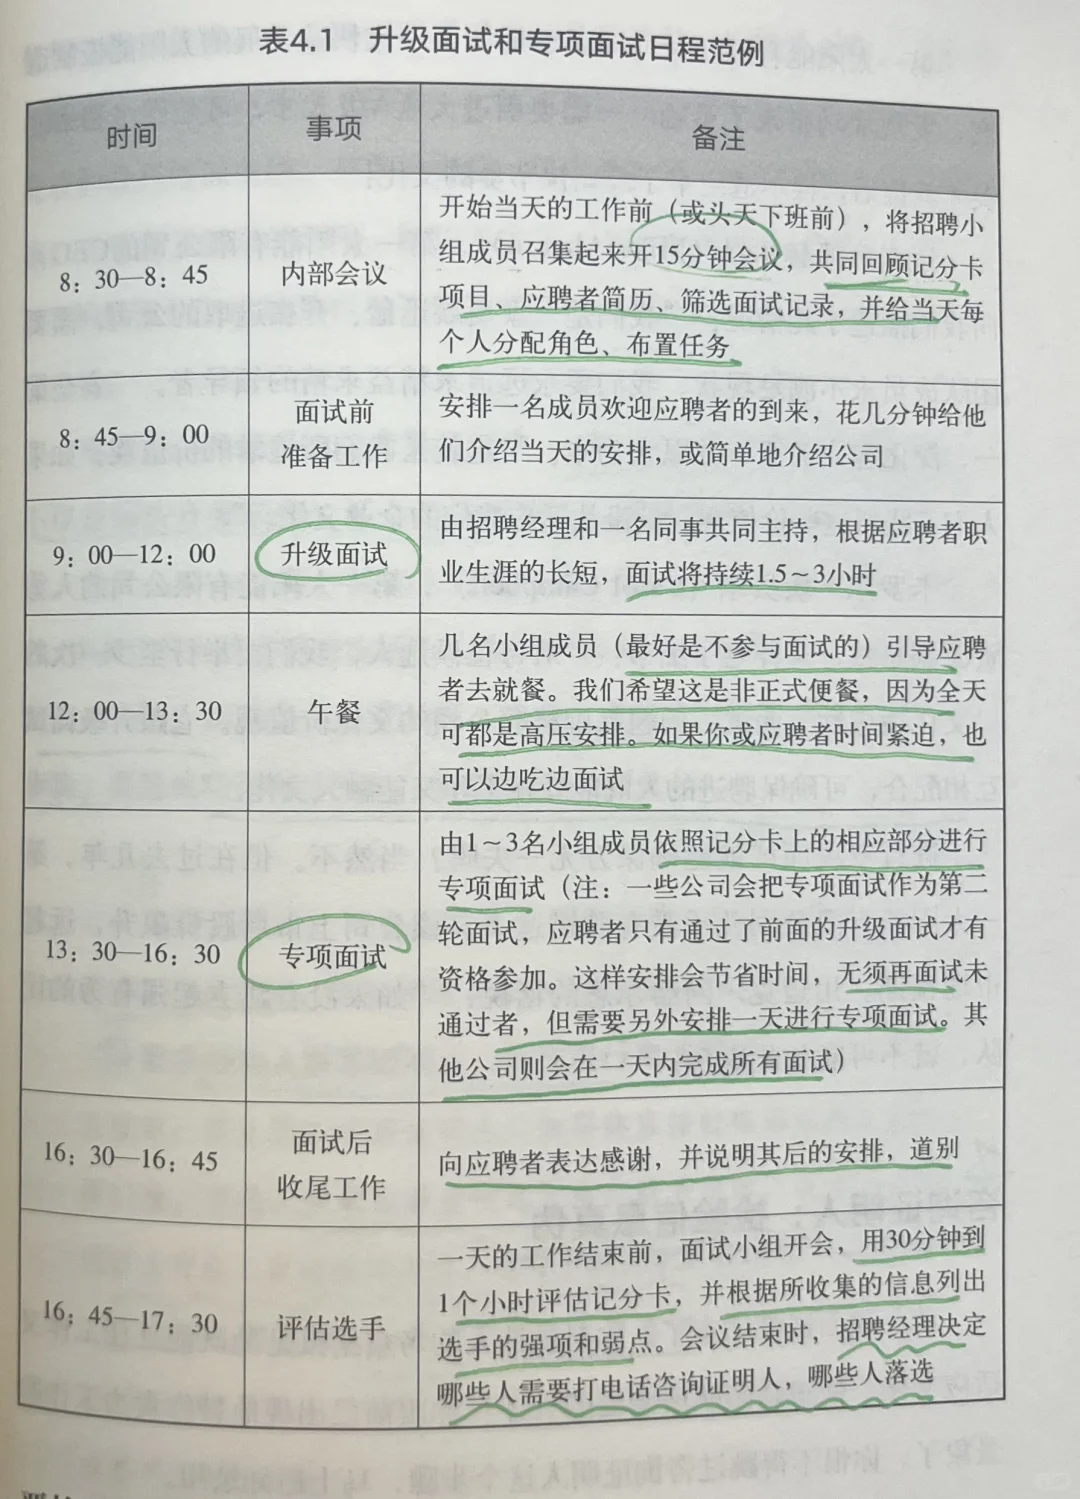 表4.1 升级面试和专项面试日程范例
时间 事项 备注
8：30—8：45
内部会议
开始当天的工作前（或头天下班前），将招聘小
组成员召集起来开15分钟会议，共同回顾记分卡
项目、应聘者简历、筛选面试记录，并给当天每
个人分配角色、布置任务
8：45—9：00
面试前
准备工作
安排一名成员欢迎应聘者的到来，花几分钟给他
们介绍当天的安排，或简单地介绍公司
9：00—12：00
升级面试
由招聘经理和一名同事共同主持，根据应聘者职
业生涯的长短，面试将持续1.5～3小时
12：00—13：30
午餐
几名小组成员（最好是不参与面试的）引导应聘
者去就餐。我们希望这是非正式便餐，因为全天
可都是高压安排。如果你或应聘者时间紧迫，也
可以边吃边面试
13：30—16：30
专项面试
由1～3名小组成员依照记分卡上的相应部分进行
专项面试（注：一些公司会把专项面试作为第二
轮面试，应聘者只有通过了前面的升级面试才有
资格参加。这样安排会节省时间，无须再面试未
通过者，但需要另外安排一天进行专项面试。其
他公司则会在一天内完成所有面试）
16：30—16：45
面试后
收尾工作
向应聘者表达感谢，并说明其后的安排，道别
16：45—17：30
评估选手
一天的工作结束前，面试小组开会，用30分钟到
1个小时评估记分卡，并根据所收集的信息列出
选手的强项和弱点。会议结束时，招聘经理决定
哪些人需要打电话咨询证明人，哪些人落选